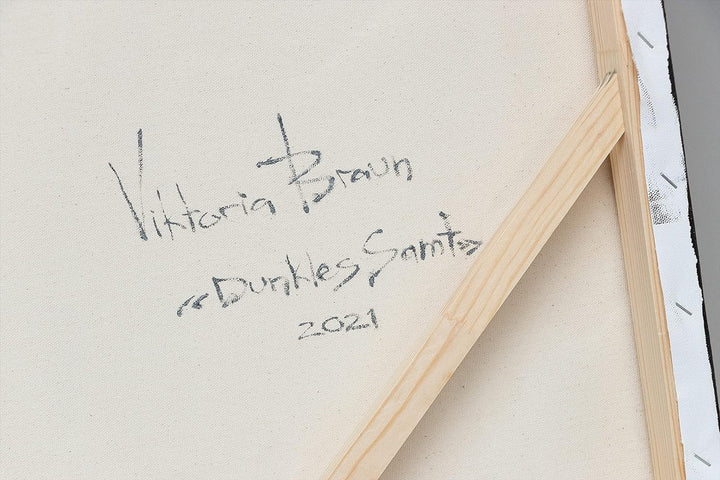 Viktoria Braun
«Dunkles Samt»
2021